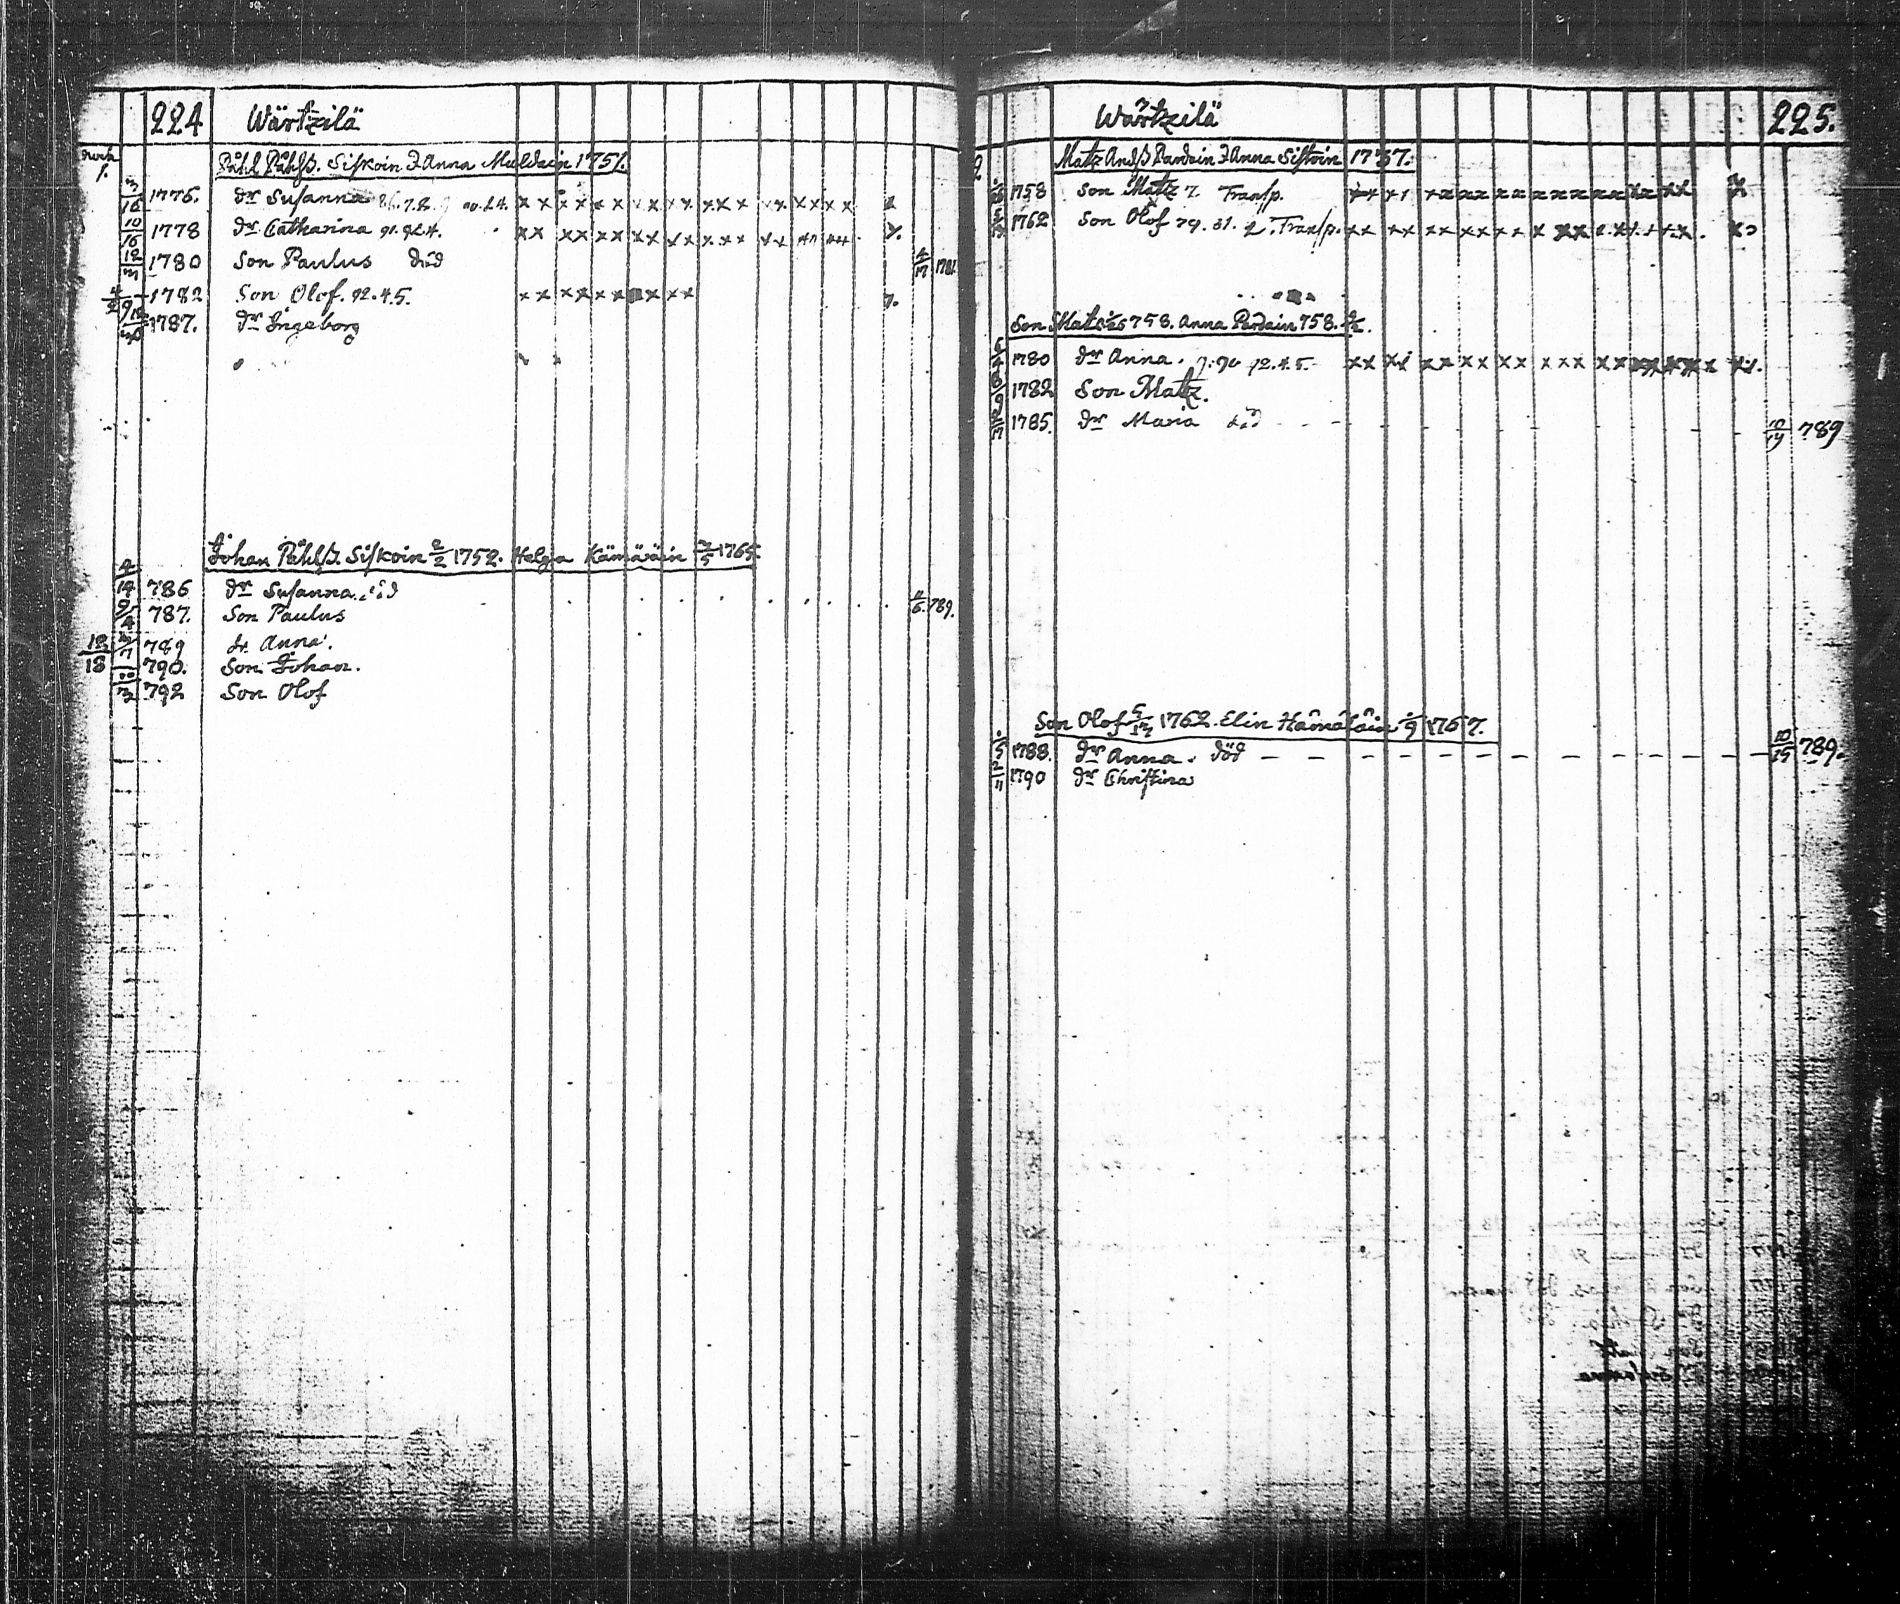 224 Wärtzilä
Påhl Påhlß. Siskoin J Anna Muldain 1751.
3/12 1776. dr Susanna 86. 7. 8.
10/16 1778 dr Catharina 91. 92.4.
12/3 1780 Son Paulus död 4/17 1781
4/2 1782 Son Olof. 92.4.5.
1787. dr Ingeborg
Johan Påhlß. Siskoin 2/2 1752. Helga Kämäräin 3/5 1765.
4/14 786 dr Susanna död 11/6 789.
9/4 787. Son Paulus
3/7 789 dr. Anna.
12/18 790. Son Johan.
792 Son Olof
Wärtzilä 225.
Matz Andß Pardain J Anna Siskoin 1737.
1758 Son Matz 7 Transp.
1762 Son Olof 79. 81. 2. Transp.
Son Mats 758. Anna Pardain 758.
1780 dr Anna. 7. 90 92.4.5.
1782 Son Matz.
1785. dr Maria död 10/19 789
Son Olof 5/13 1762. Elin Hämäläin 1767.
1788. dr Anna. död 10/15 789.
2/11 1790 dr Christina